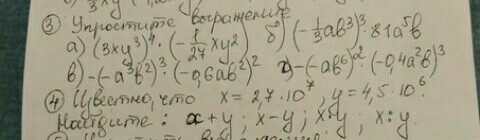 ③ Упростите выражение
а) (3xy³)⁴ · (-1/27 xy²) б) (-1/3 ab³)³ · 81a⁵b
в) -(-a³b²)³ · (-0,6ab²)² г) -(-ab⁶)² · (-0,4a²b)³
④ Цвестно, что x = 2,7·10⁷, y = 4,5·10⁶.
Найдите: x+y; x-y; x·y; x:y.